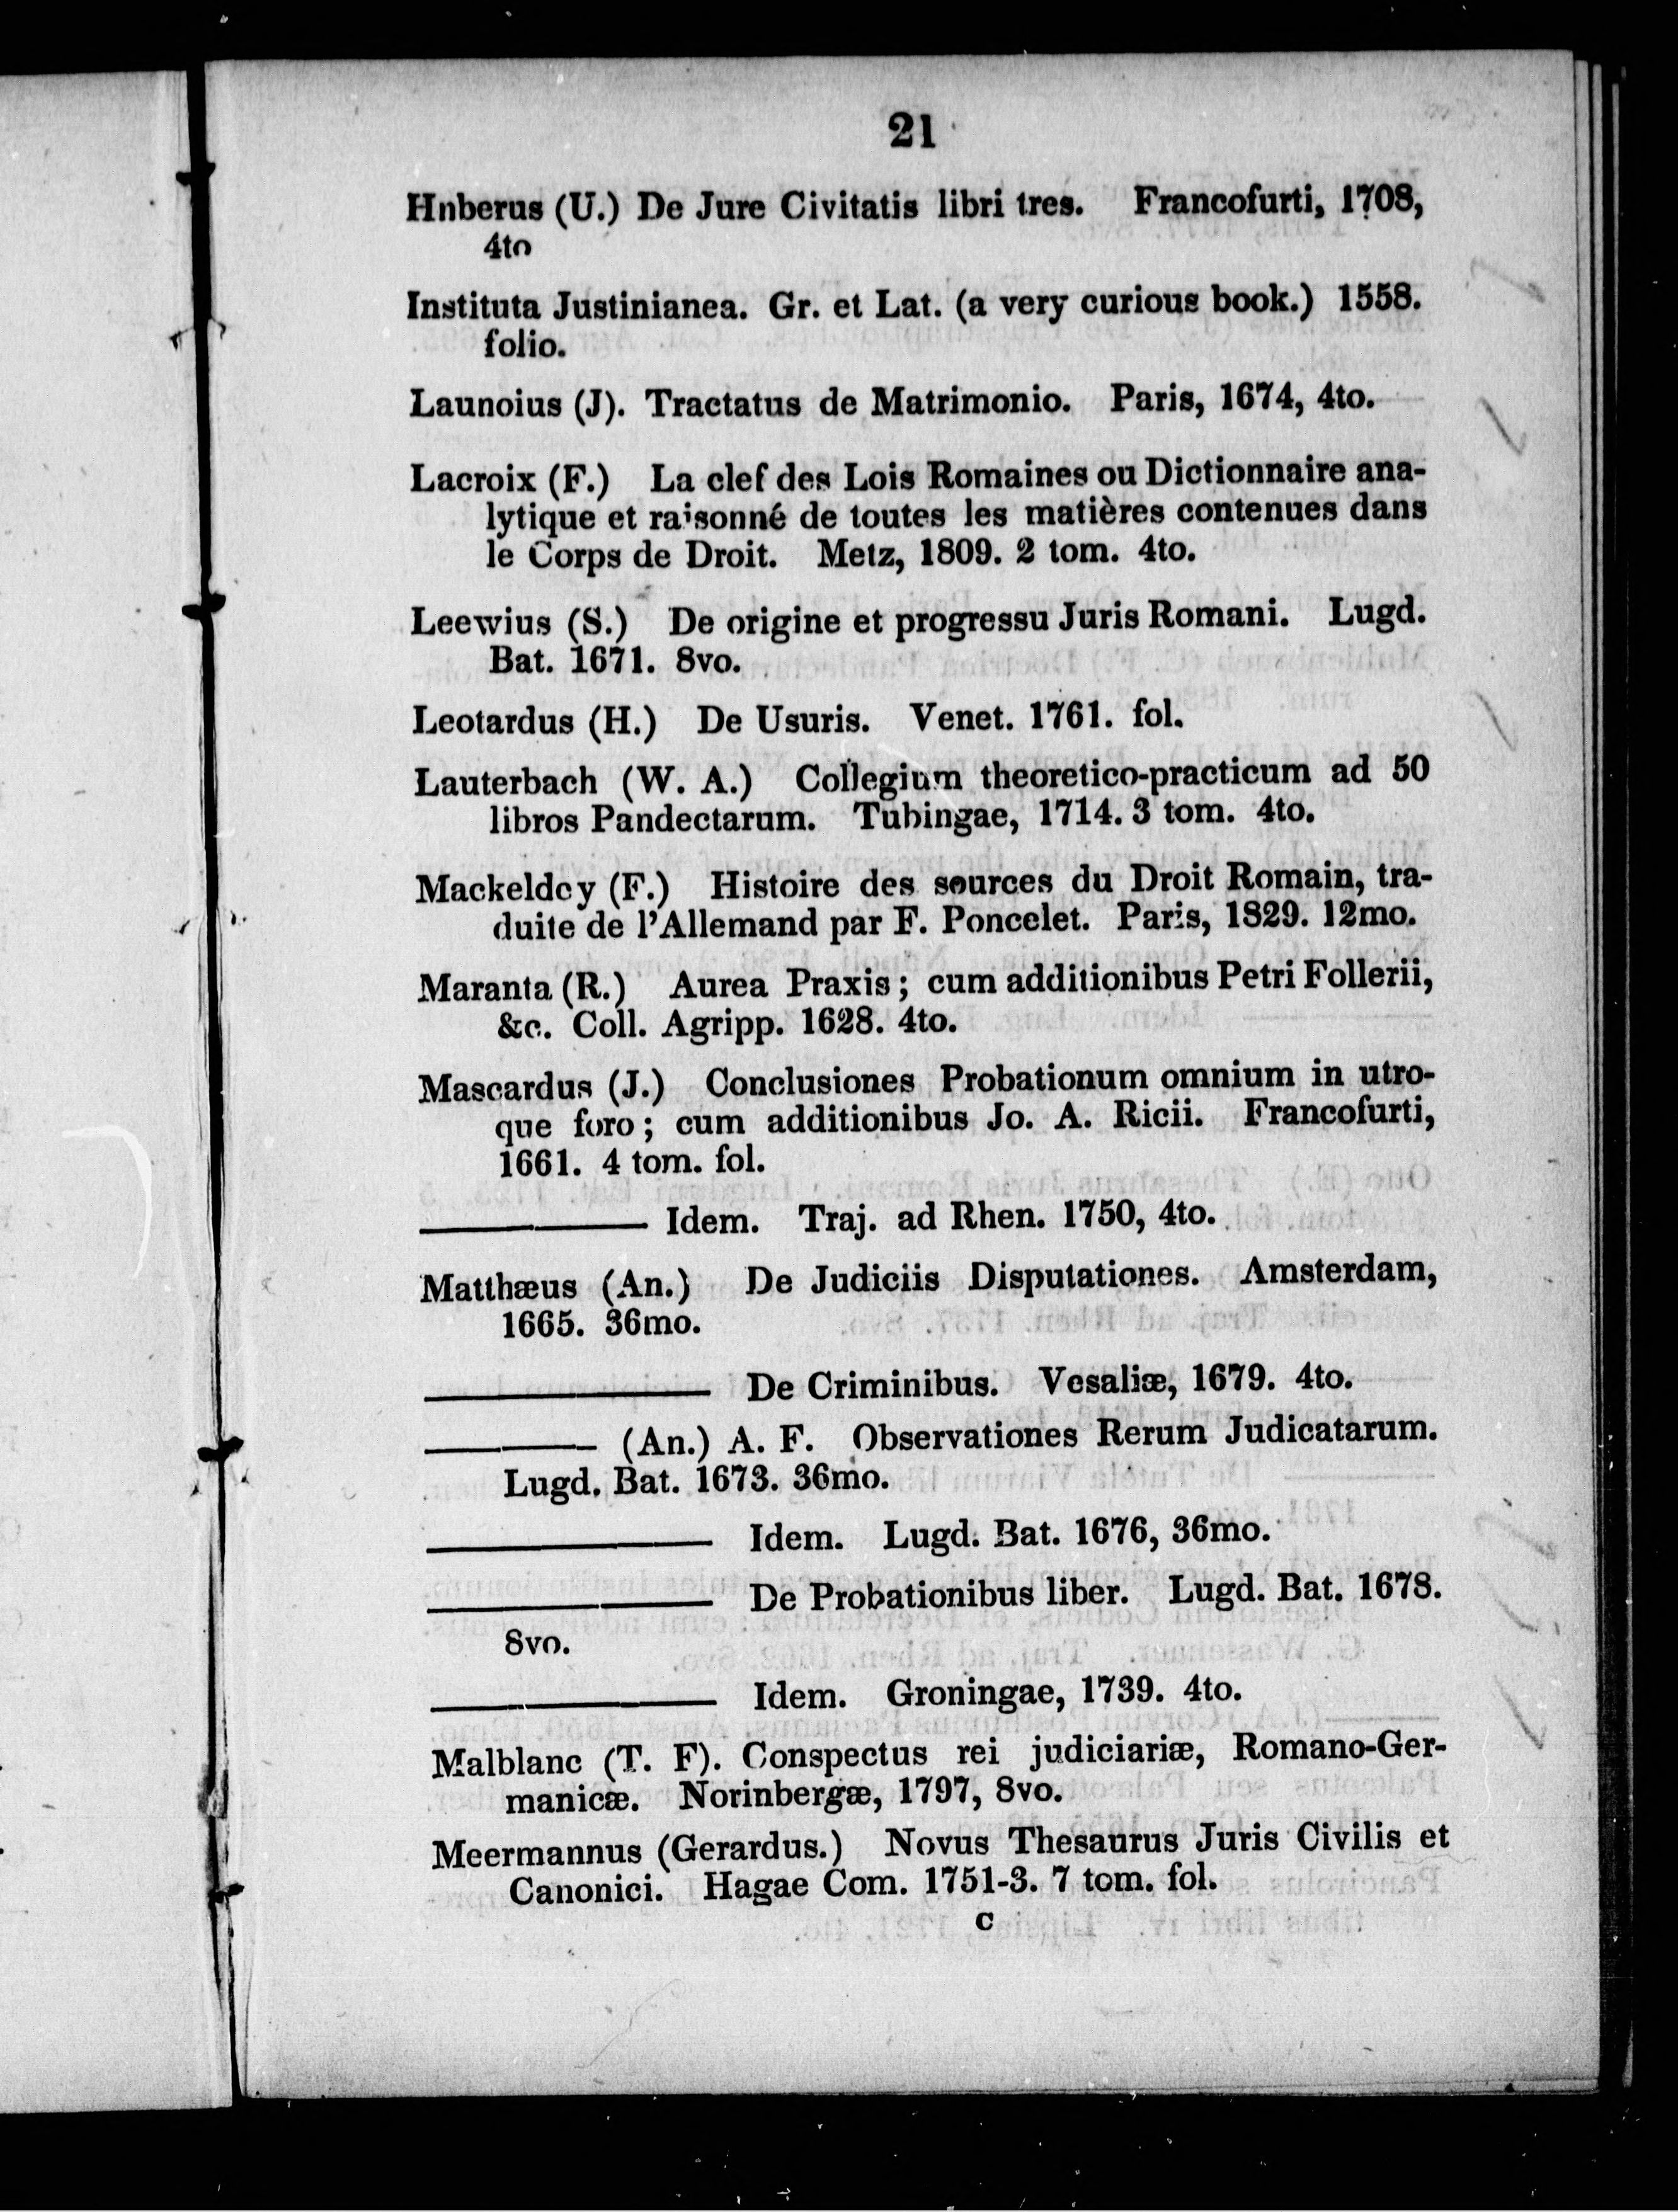 21
Hnberus (U.) De Jure Civitatis libri tres. Francofurti, 1708,
4to
Instituta Justinianea. Gr. et Lat. (a very curious book.) 1558.
folio.
Launoius (J). Tractatus de Matrimonio. Paris, 1674, 4to.
Lacroix (F.) La clef des Lois Romaines ou Dictionnaire ana-
lytique et raisonné de toutes les matières contenues dans
le Corps de Droit. Metz, 1809. 2 tom. 4to.
Leewius (S.) De origine et progressu Juris Romani. Lugd.
Bat. 1671. 8vo.
Leotardus (H.) De Usuris. Venet. 1761. fol.
Lauterbach (W. A.) Collegium theoretico-practicum ad 50
libros Pandectarum. Tubingae, 1714. 3 tom. 4to.
Mackeldey (F.) Histoire des sources du Droit Romain, tra-
duite de l'Allemand par F. Poncelet. Paris, 1829. 12mo.
Maranta (R.) Aurea Praxis; cum additionibus Petri Follerii,
&c. Coll. Agripp. 1628. 4to.
Mascardus (J.) Conclusiones Probationum omnium in utro-
que foro; cum additionibus Jo. A. Ricii. Francofurti,
1661. 4 tom. fol.
——— Idem. Traj. ad Rhen. 1750, 4to.
Matthæus (An.) De Judiciis Disputationes. Amsterdam,
1665. 36mo.
——— De Criminibus. Vesaliæ, 1679. 4to.
——— (An.) A. F. Observationes Rerum Judicatarum.
Lugd. Bat. 1673. 36mo.
——— Idem. Lugd. Bat. 1676, 36mo.
——— De Probationibus liber. Lugd. Bat. 1678.
8vo.
——— Idem. Groningae, 1739. 4to.
Malblanc (T. F). Conspectus rei judiciariæ, Romano-Ger-
manicæ. Norinbergæ, 1797, 8vo.
Meermannus (Gerardus.) Novus Thesaurus Juris Civilis et
Canonici. Hagae Com. 1751-3. 7 tom. fol.
C